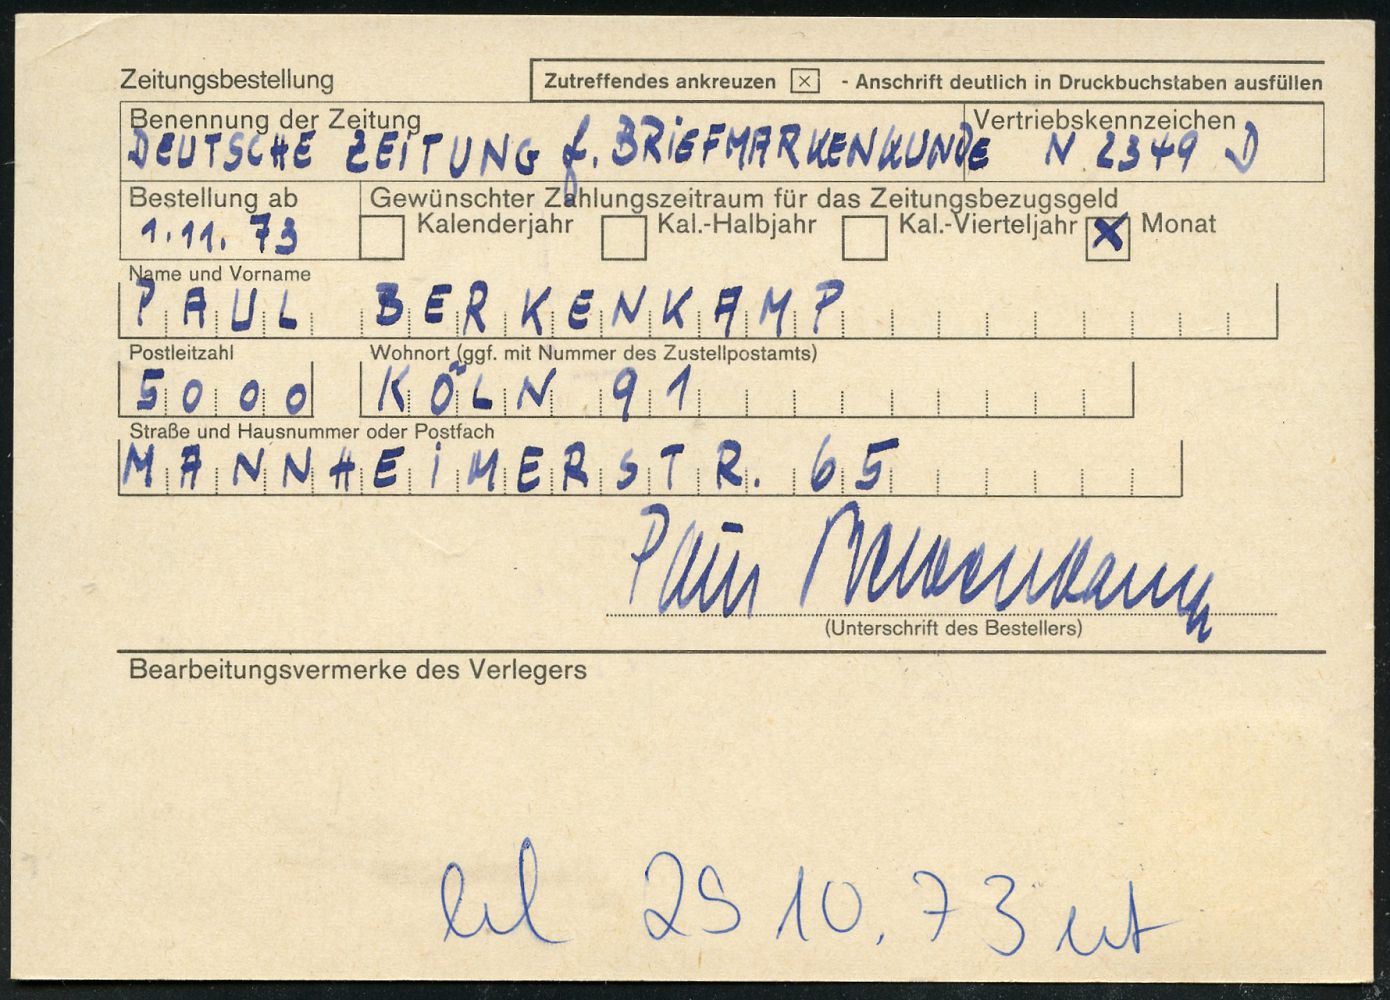 Zeitungsbestellung
Zutreffendes ankreuzen ☒ - Anschrift deutlich in Druckbuchstaben ausfüllen
Benennung der Zeitung Vertriebskennzeichen
DEUTSCHE ZEiTUNG f. BRiEFMARKENKUNDE N 2349 D
Bestellung ab Gewünschter Zahlungszeitraum für das Zeitungsbezugsgeld
1.11.73 ☐ Kalenderjahr ☐ Kal.-Halbjahr ☐ Kal.-Vierteljahr ☒ Monat
Name und Vorname
PAUL BERKENKAMP
Postleitzahl Wohnort (ggf. mit Nummer des Zustellpostamts)
5000 KÖLN 91
Straße und Hausnummer oder Postfach
MANNHEiMERSTR. 65
Paul Berkenkamp
(Unterschrift des Bestellers)
Bearbeitungsvermerke des Verlegers
10.73